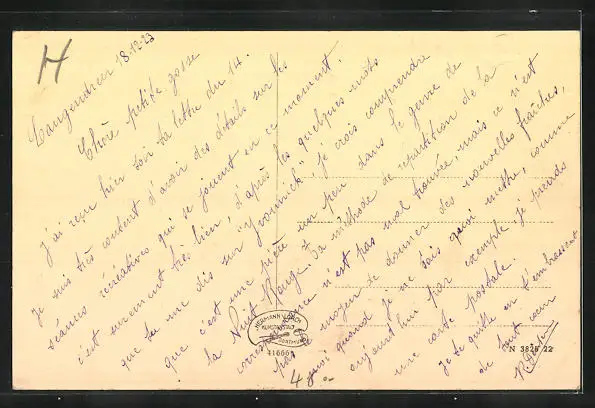 H
Langendreer 18-12-23
Chère petite gosse
J'ai reçu hier soir ta lettre du 14.
Je suis très content d'avoir des détails sur les
séances récréatives qui se jouent en ce moment.
c'est vraiment très bien, d'après les quelques mots
que tu me dis sur je crois comprendre
que c'est une pièce un peu dans le genre de
la Nuit Rouge. Ta méthode de répartition de la
correspondance n'est pas mal trouvée, mais ce n'est
pas moyen de donner des nouvelles fraîches,
4 quand je ne sais quoi mettre, comme
aujourd'hui par exemple je prends
une carte postale.
je te quitte en t'embrassant
de tout cœur
HERMANN LORCH
KUNSTANSTALT
DORTMUND
N 3828 22